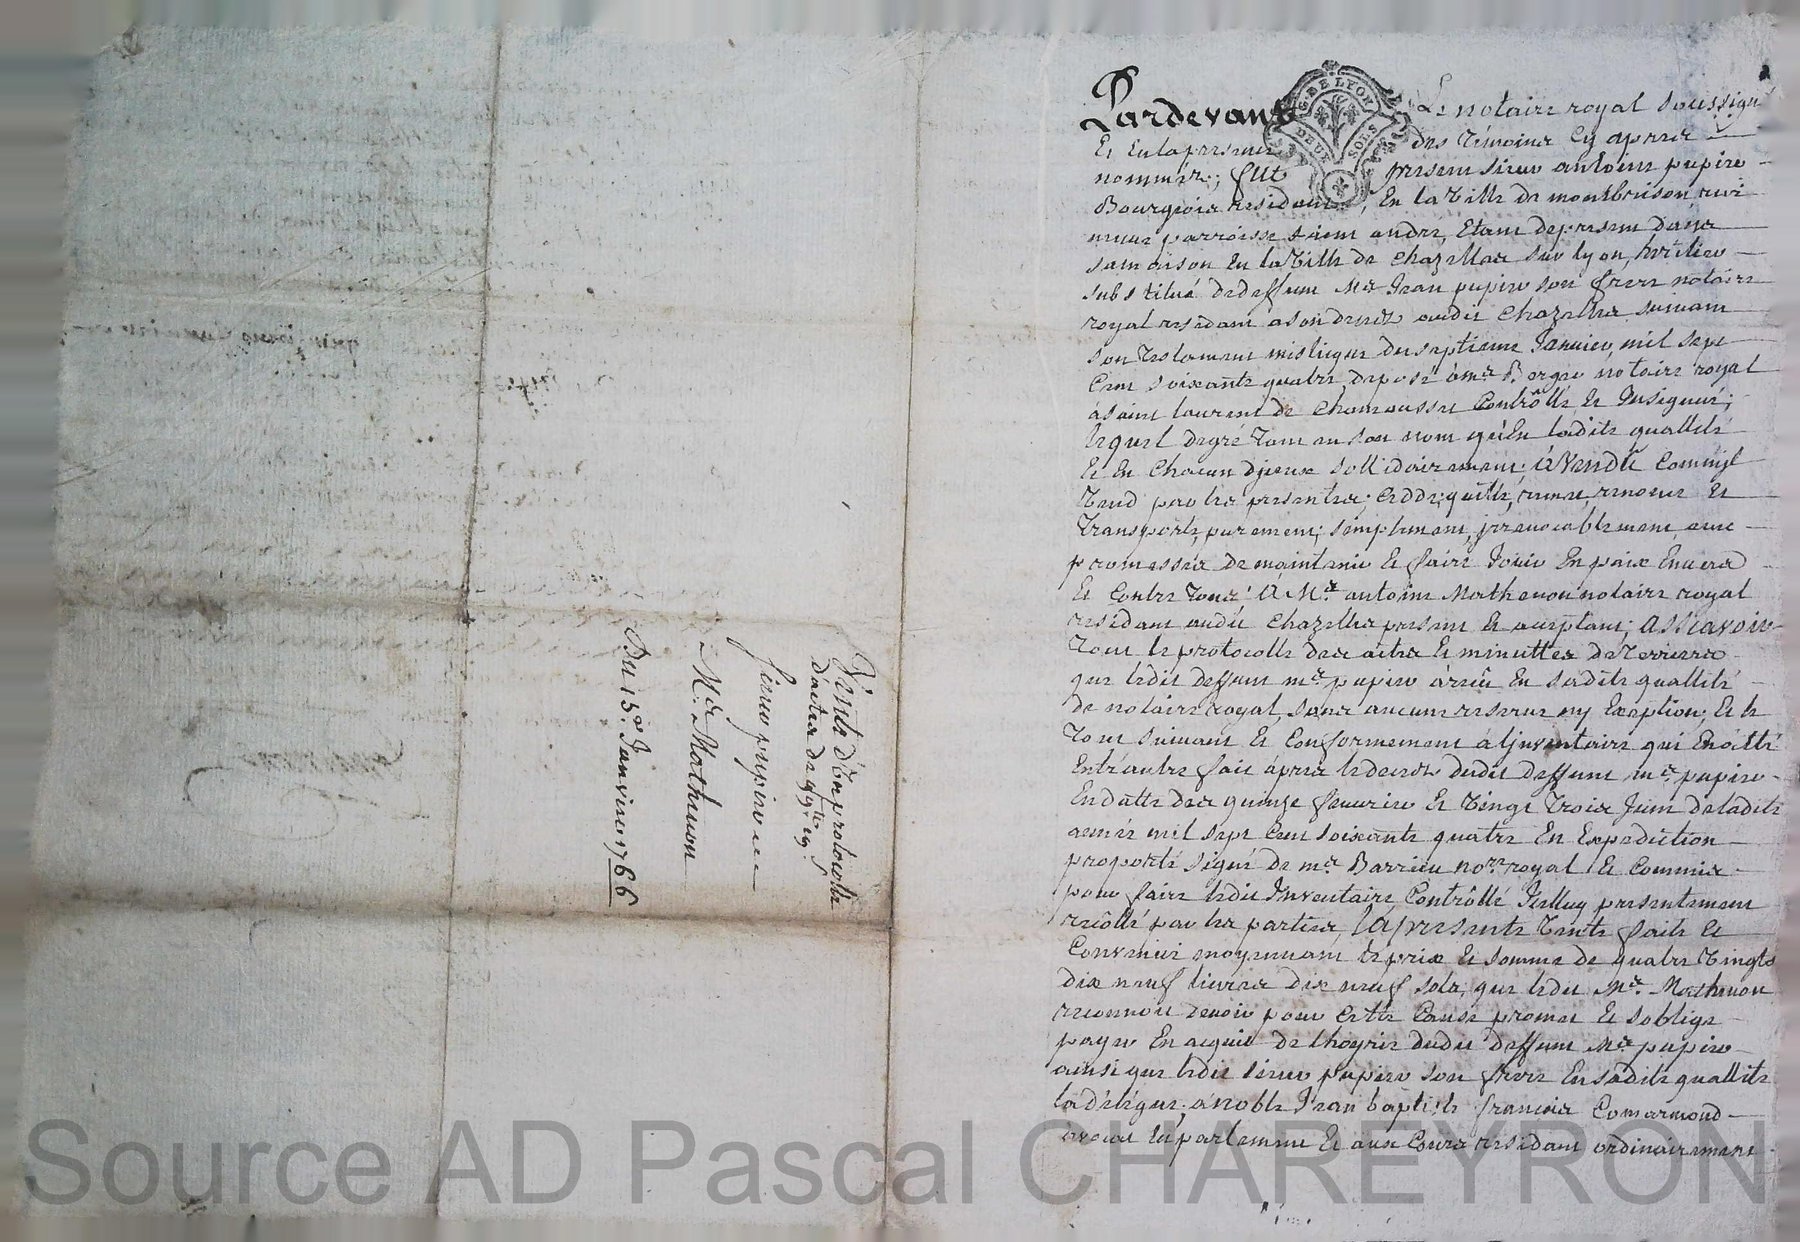 Vente d'Un protocolle
d'actes de
sieur pupier
Me. Mathevon
Du 15e. Janvier 1766
G. DE LYON
DEUX SOLS
Pardevant Le notaire royal soussigné
Et En la presence des témoins Cy apres
nommés; fut present sieur antoine pupier
Bourgeois residant, En la Ville de montbrison
parroisse saint andré, Etant de present dans
sa maison En la Ville de chazelles sur lyon, heritier
substitué de deffunt Me Jean pupier son frere notaire
royal residant a son deces audit Chazelles suivant
son testament mistique du septieme Janvier, mil sept
Cent soixante quatre, deposé a me Berger notaire royal
a saint laurent de chamousset Controllé Et Insignué;
lequel de gré tant en son nom qu'En ladite quallité
Et En chacun d'jceux sollidairement a Vendû Comme jl
Vend par les presentes, cedde, quitte, remet Et
Transporte, purement, simplement, jrrevocablement, avec
promesses de maintenir Et faire Jouir En paix Envers
Et Contre tous a Me. antoine Mathevon notaire royal
residant audit Chazelles present Et acceptant; assavoir
Tout le protocolle des actes Et minuttes de Terriers
que ledit deffunt me. pupier a reçû En sadite quallité
de notaire royal, sans aucune reserve ny Exeption, Et le
tout suivant Et Conformement a l'jnventaire qui En a été
Entr'autre fait apres le deces dudit deffunt me. pupier
En datte des quinze fevrier Et Vingt trois Juin de ladite
année mil sept Cent soixante quatre En Expedition
raporté signé de me. Barrieu nore. royal Et Commis
pour faire ledit Inventaire Controllé Icelluy presentement
recollé par les parties, la presente Vente faite Et
Convenue moyennant le prix Et somme de quatre Vingts
dix neuf livres dix neuf sols, que ledit Me. Mathevon
reconnoit devoir pour cette Cause promet Et s'oblige
payer En acquit de l'hoyrie dudit deffunt Me pupier
ainsi que ledit sieur pupier son frere En sadite quallité
la délégue, a noble Jean baptiste françois Comarmond
avocat En parlement Et aux Cours residant ordinairement
Source AD Pascal CHAREYRON